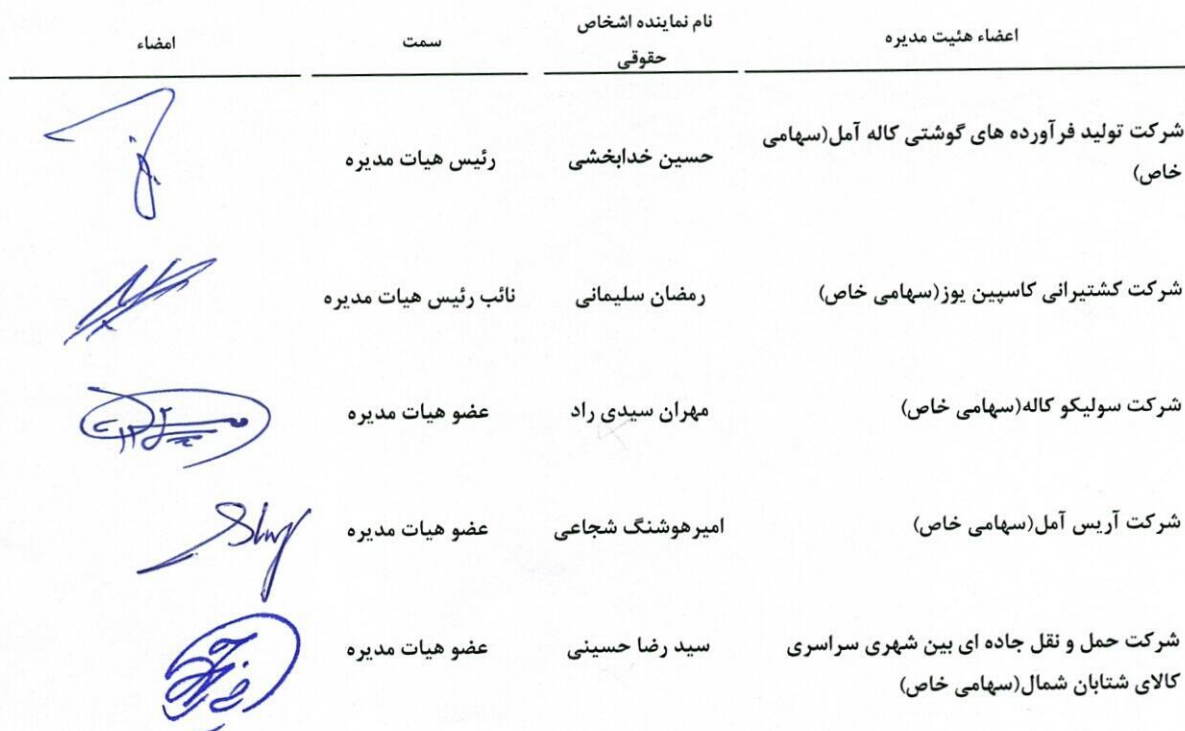 اعضاء هئیت مدیره
نام نماینده اشخاص
حقوقی
سمت
امضاء
شرکت تولید فرآورده های گوشتی کاله آمل(سهامی
خاص)
حسین خدابخشی
رئیس هیات مدیره
شرکت کشتیرانی کاسپین یوز(سهامی خاص)
رمضان سلیمانی
نائب رئیس هیات مدیره
شرکت سولیکو کاله(سهامی خاص)
مهران سیدی راد
عضو هیات مدیره
شرکت آریس آمل(سهامی خاص)
امیرهوشنگ شجاعی
عضو هیات مدیره
شرکت حمل و نقل جاده ای بین شهری سراسری
کالای شتابان شمال(سهامی خاص)
سید رضا حسینی
عضو هیات مدیره